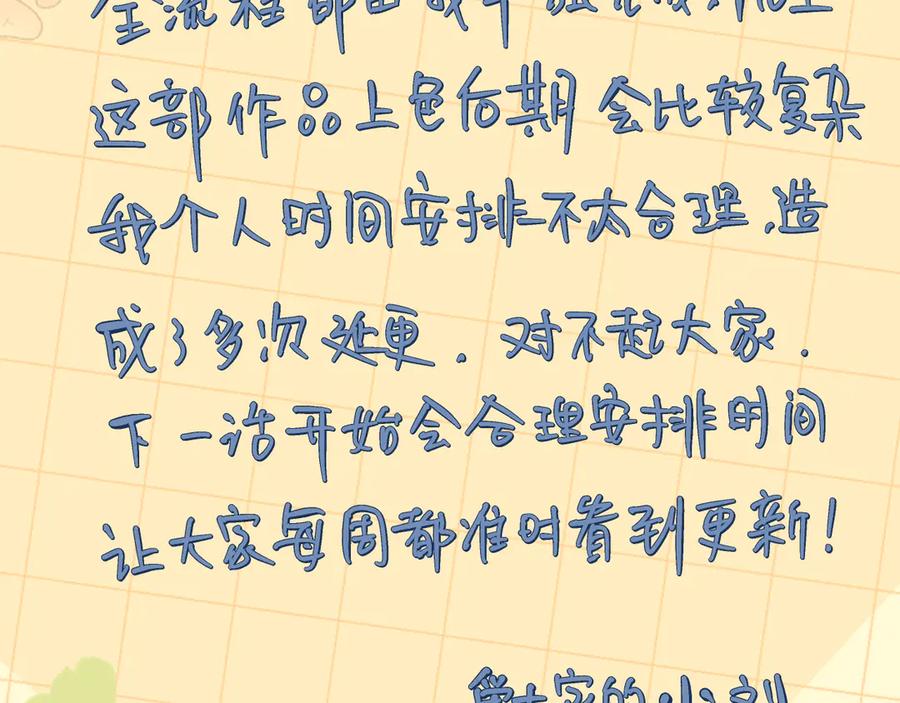 全流程都由我单独完成
这部作品上色后期会比较复杂
我个人时间安排不太合理,造
成了多次延更.对不起大家.
下一话开始会合理安排时间
让大家每周都准时看到更新!
爱大家的小刘